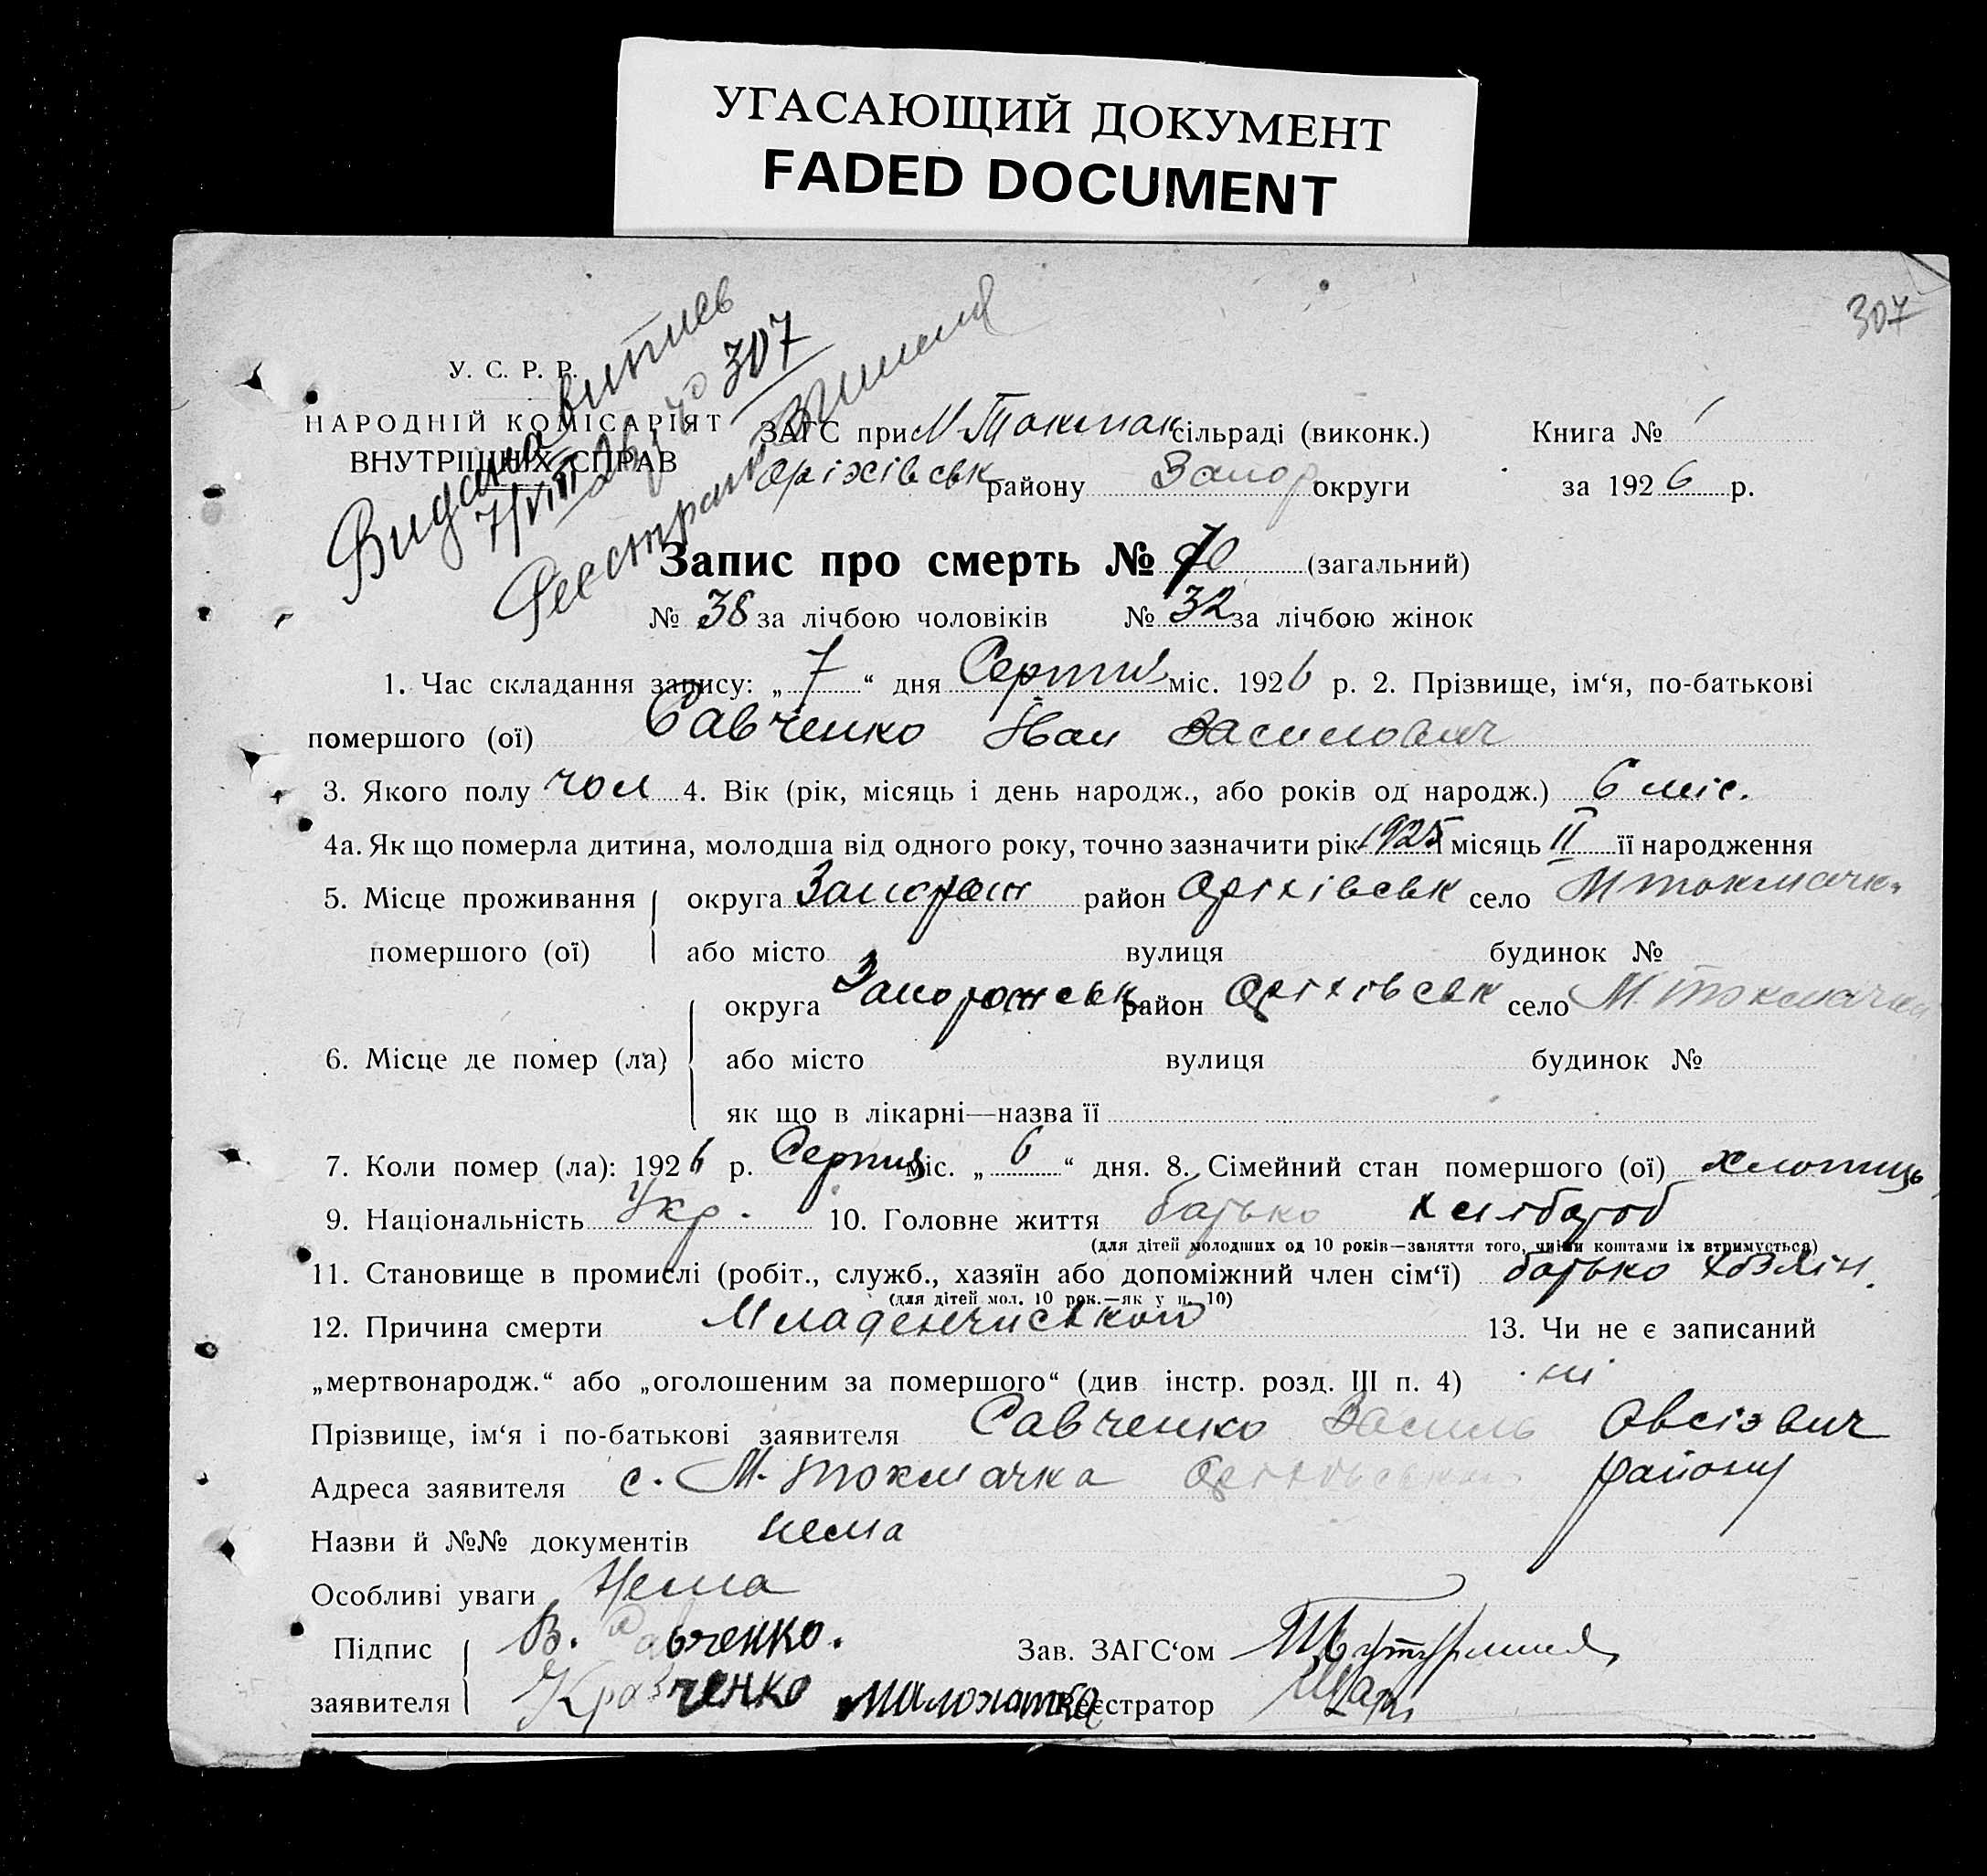 УГАСАЮЩИЙ ДОКУМЕНТ
FADED DOCUMENT
307
Видана витпись
7/VIII 26 р. № 307
У. С. Р. Р.
НАРОДНІЙ КОМІСАРІЯТ
ВНУТРІШНІХ СПРАВ
ЗАГС при М-Токмак сільраді (виконк.) Книга № 1
Оріхівськ району Запор округи за 1926 р.
Запис про смерть № 70 (загальний)
№ 38 за лічбою чоловіків № 32 за лічбою жінок
1. Час складання запису: „ 7 “ дня Серпня міс. 1926 р. 2. Прізвище, ім‘я, по-батькові
помершого (ої) Савченко Іван Василович
3. Якого полу чол 4. Вік (рік, місяць і день народж., або років од народж.) 6 міс.
4а. Як що померла дитина, молодша від одного року, точно зазначити рік 1925 місяць II її народження
5. Місце проживання округа Запоріж район Оріхівськ село М токмачк.
помершого (ої) або місто вулиця будинок №
округа Запорожськ район Оріхівськ село М. токмачка
6. Місце де помер (ла) або місто вулиця будинок №
як що в лікарні—назва її
7. Коли помер (ла): 1926 р. Серпня міс. „ 6 “ дня. 8. Сімейний стан помершого (ої) хлопиць
9. Національність Укр. 10. Головне життя батько хлібороб
(для дітей молодших од 10 років—заняття того, чиїми коштами їх втримується)
11. Становище в промислі (робіт., служб., хазяїн або допоміжний член сім‘ї) батько хозяїн.
(для дітей мол. 10 рок.—як у п. 10)
12. Причина смерти Младенчиського 13. Чи не є записаний
„мертвонародж.“ або „оголошеним за помершого“ (див інстр. розд. III п. 4) ні
Прізвище, ім‘я і по-батькові заявителя Савченко Василь Овсієвич
Адреса заявителя с. М. токмачка Оріхівського району
Назви й №№ документів нема
Особливі уваги Нема
Підпис В. Савченко. Зав. ЗАГС‘ом
заявителя Кравченко Реєстратор